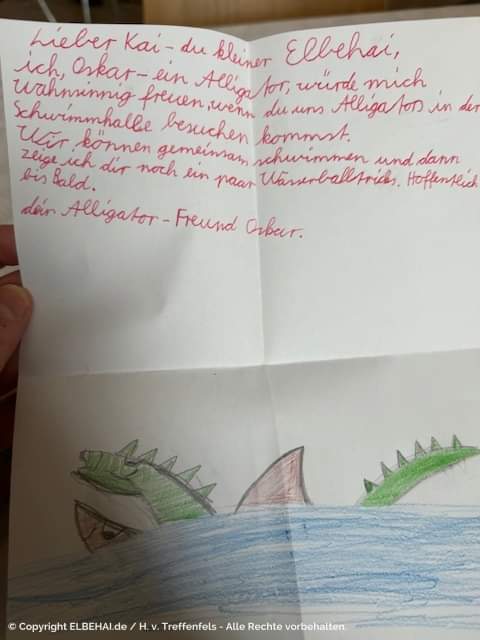 Lieber Kai - du kleiner Elbehai,
ich, Oskar - ein Alligator, würde mich
Wahnsinnig freuen, wenn du uns Alligators in der
Schwimmhalle besuchen kommst.
Wir können gemeinsam schwimmen und dann
zeige ich dir noch ein paar Wasserballtricks. Hoffentlich
bis Bald.
dein Alligator - Freund Oskar.
© Copyright ELBEHAI.de / H. v. Treffenfels - Alle Rechte vorbehalten.